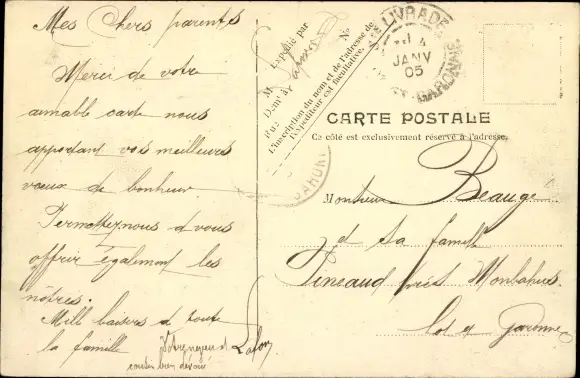 Mes Chers parents
Merci de votre
aimable carte nous
apportant vos meilleurs
vœux de bonheur.
Permettez nous d vous
offrir également les
nôtres.
Mill baisers d tout
la famille
Votre neveu et
cousin bien dévoué
Lafon
Expédié par
M
Demt à
Rue
No
L'inscription du nom et de l'adresse de
l'expéditeur est facultative.
LIVRADE
JANV
05
GARONNE
CARTE POSTALE
Ce côté est exclusivement réservé à l'adresse.
CAHORS
Monsieur Beaugé
et sa famille
Tineaud près Monbahus
Lot et Garonne